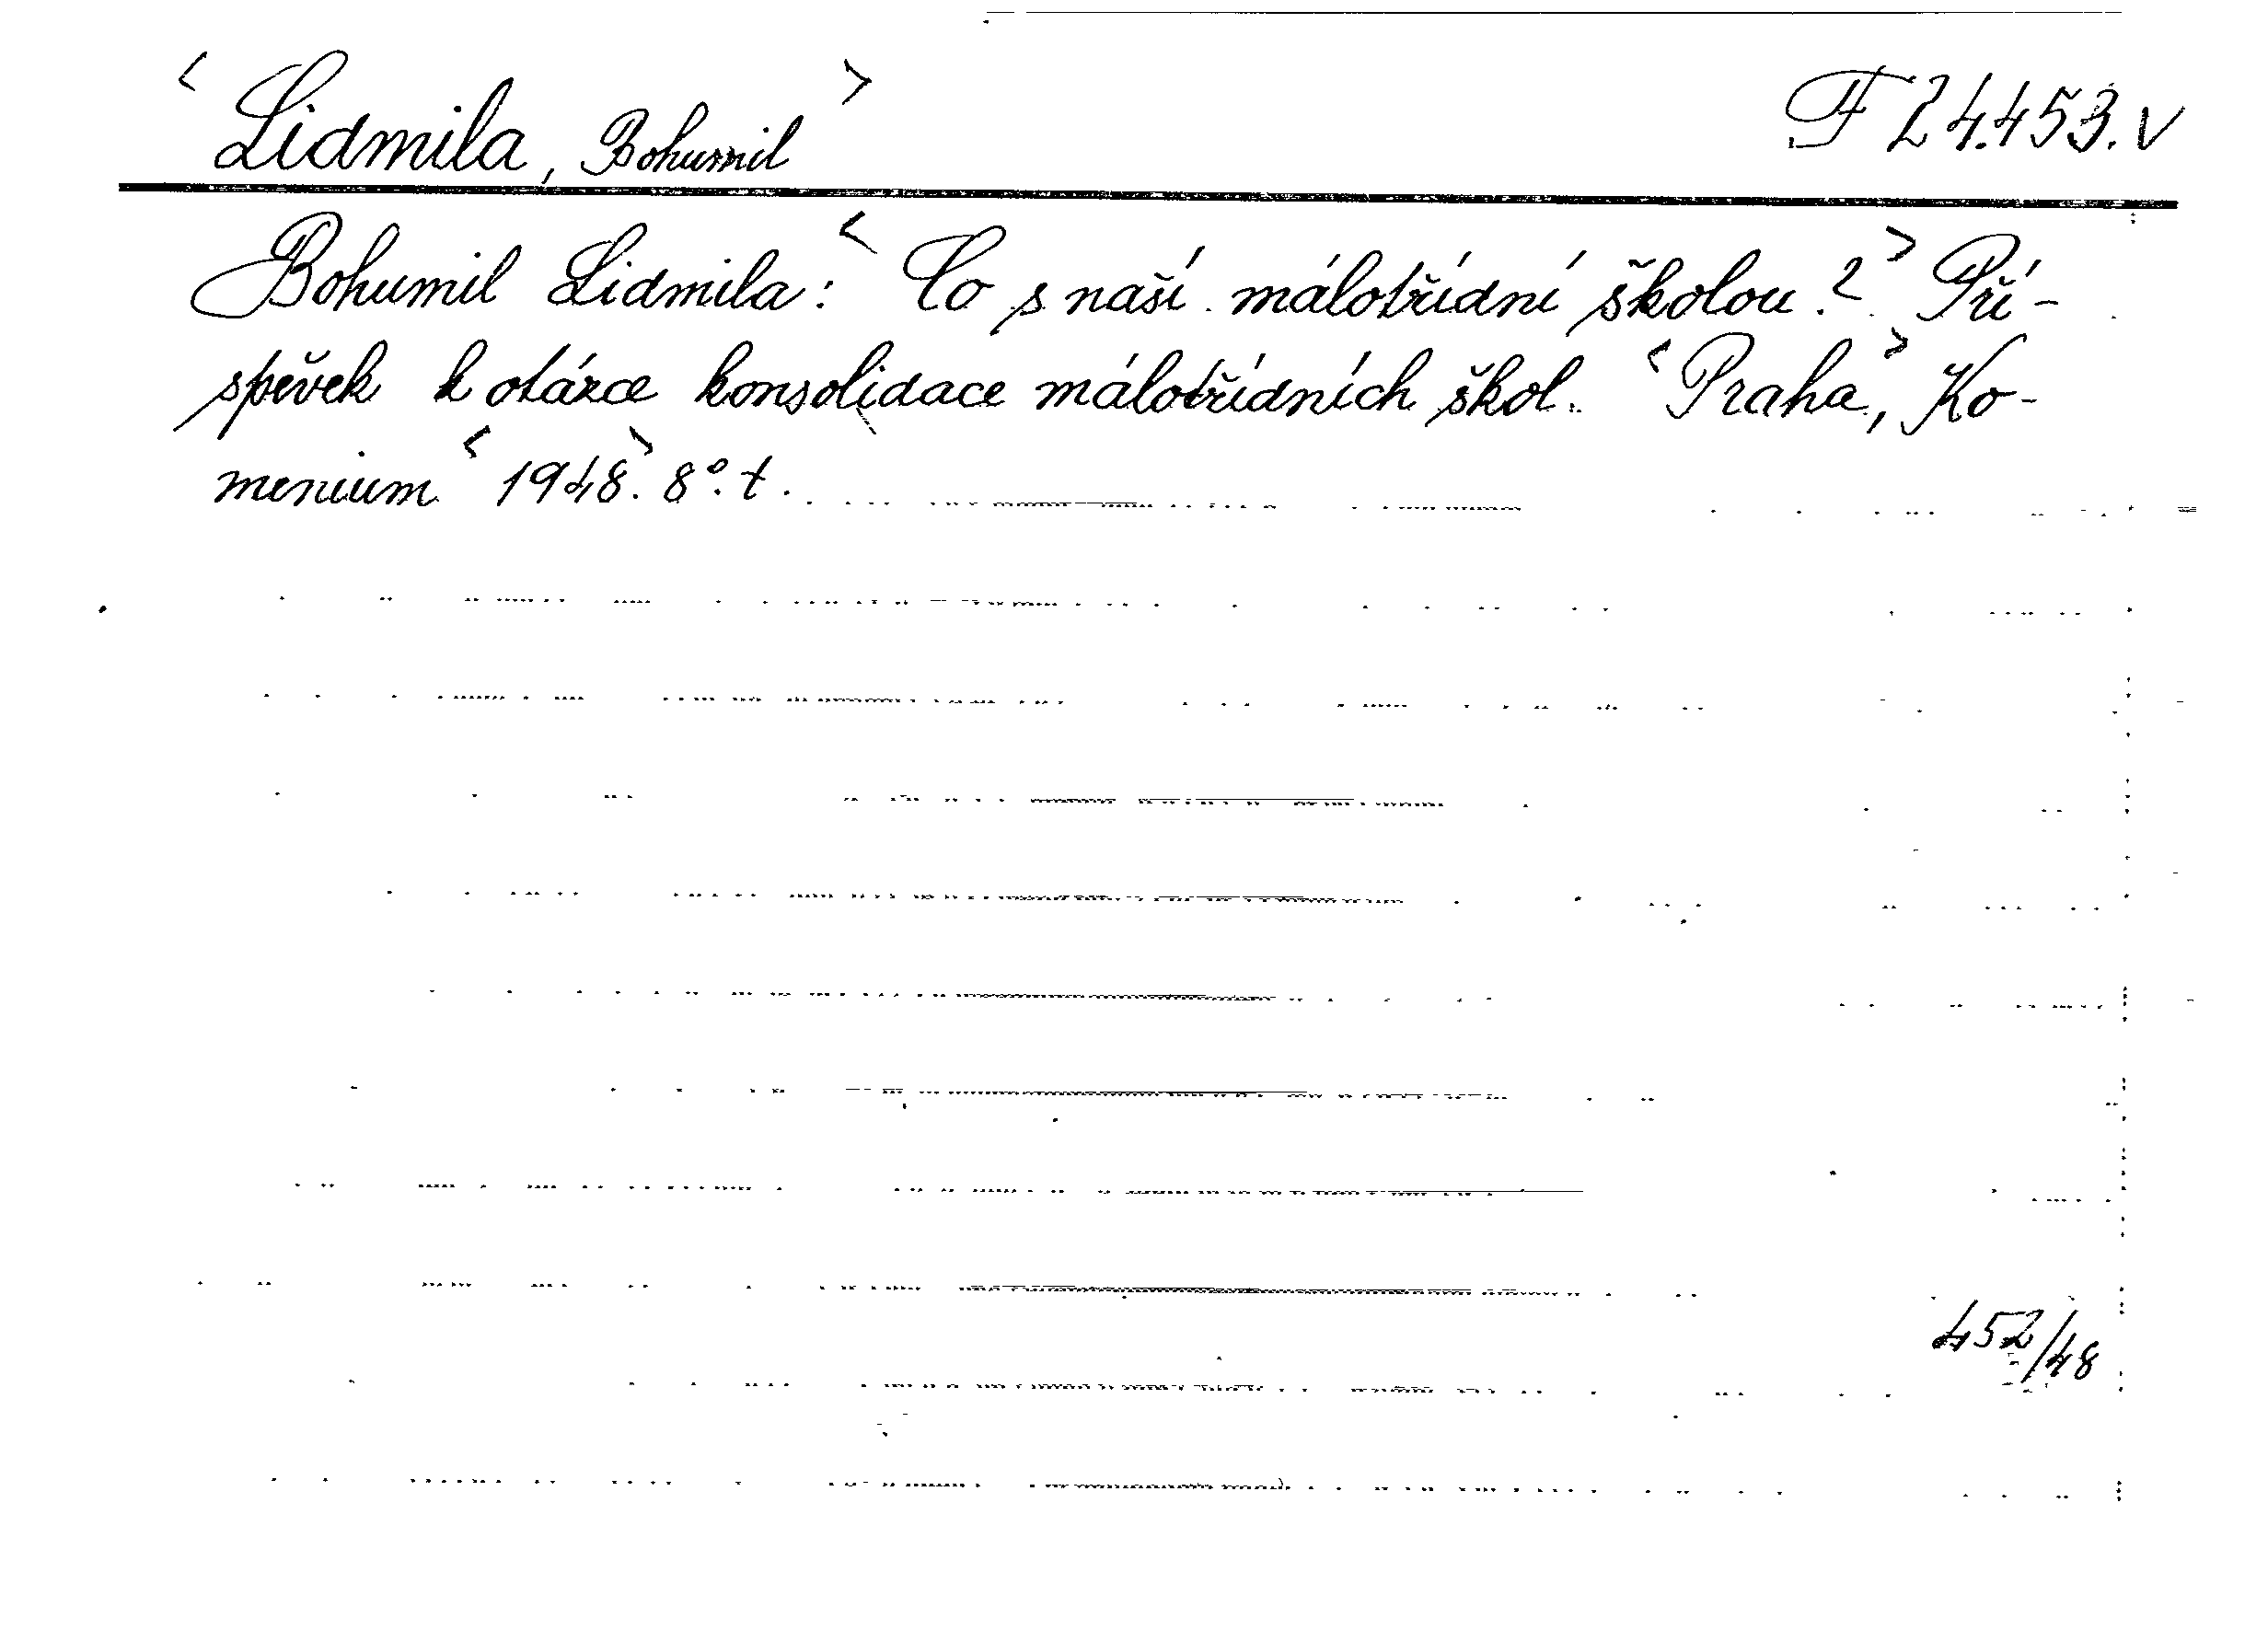 <Lidmila, Bohumil> F 24.453. V
Bohumil Lidmila: <Co s naší málotřídní školou?> Pří-
spěvek k otázce konsolidace málotřídních škol. <Praha>, Ko-
menium <1948>. 8°. t.
452/48